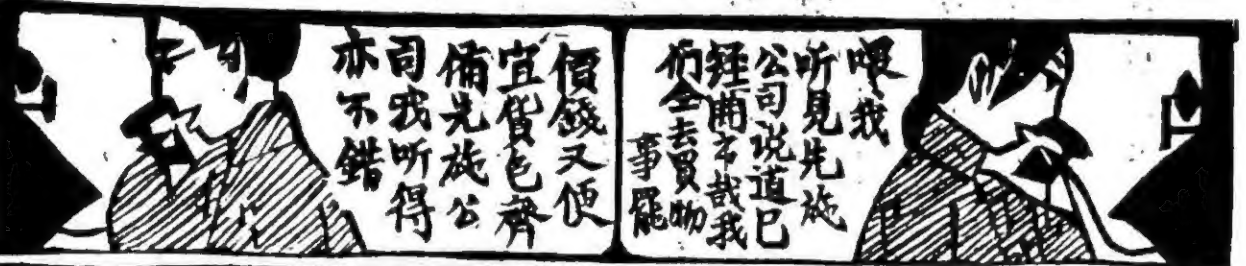 喂我
听見先施
公司说道已
經開市哉我
们仝去買物
事罷
價錢又便
宜貨色齊
備先施公
司我听得
亦不錯